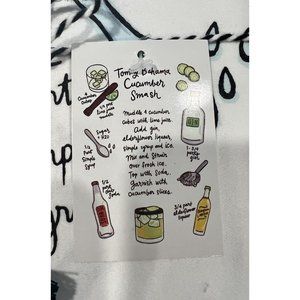 Tommy Bahama
Cucumber
Smash
4
cucumber
cubes
3/4 part
lime juice
muddle
Muddle 4 cucumber
cubes with lime juice.
Add gin,
elderflower liqueur,
simple syrup and ice.
Mix and strain
over fresh ice.
Top with soda.
Garnish with
cucumber slices.
Sugar
+ H2O
1/2
part
simple
syrup
GIN
parts
gin
1/2
part
Soda
3/4 part
elderflower
liqueur